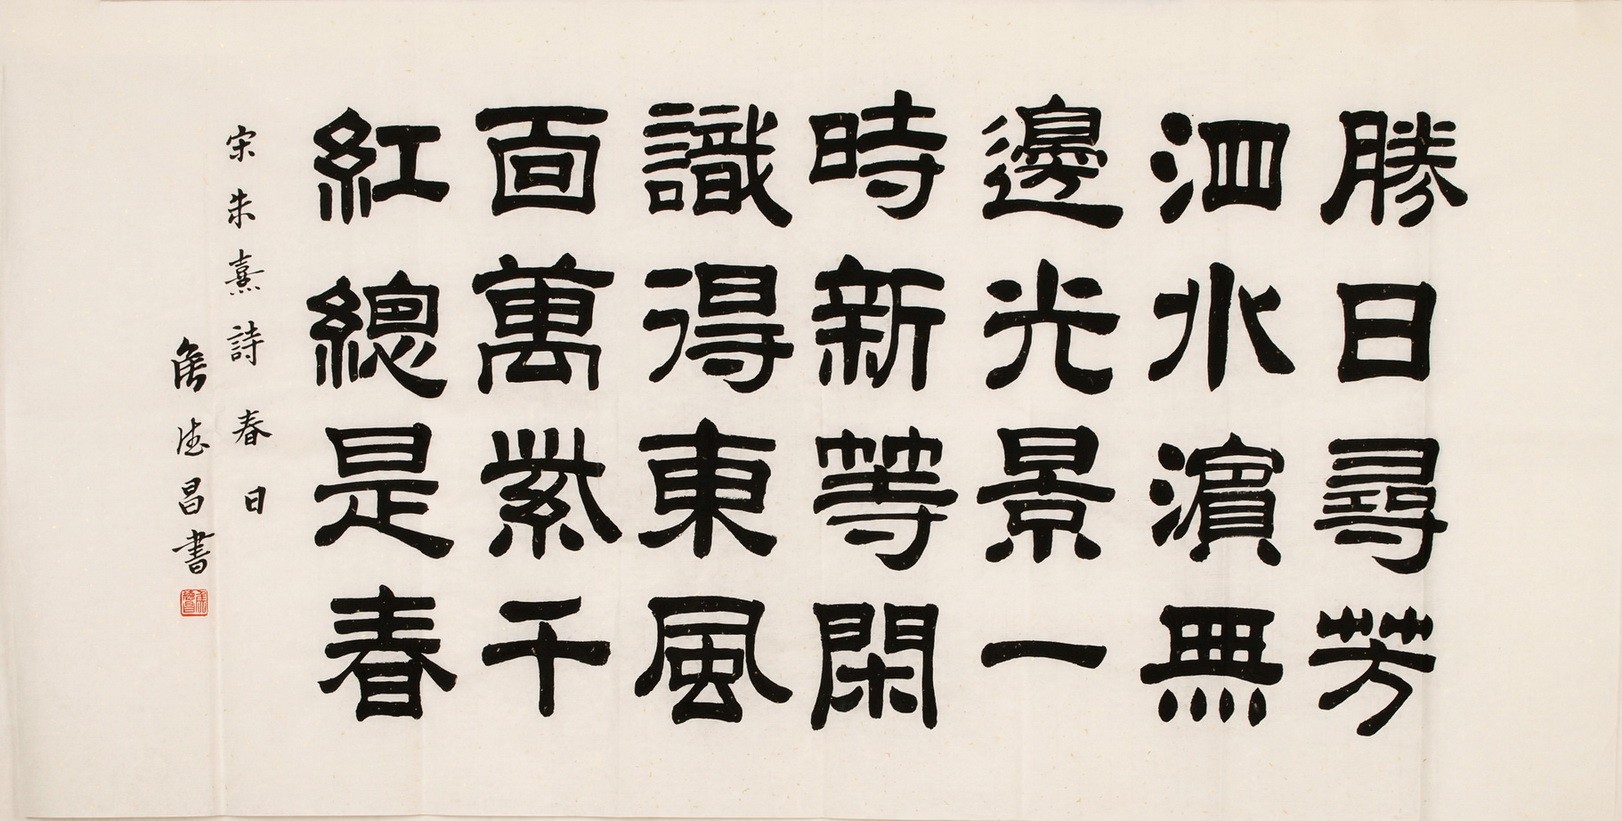 勝日尋芳
泗水濱無
邊光景一
時新等閑
識得東風
面萬紫千
紅總是春
宋朱熹詩 春日
德昌書